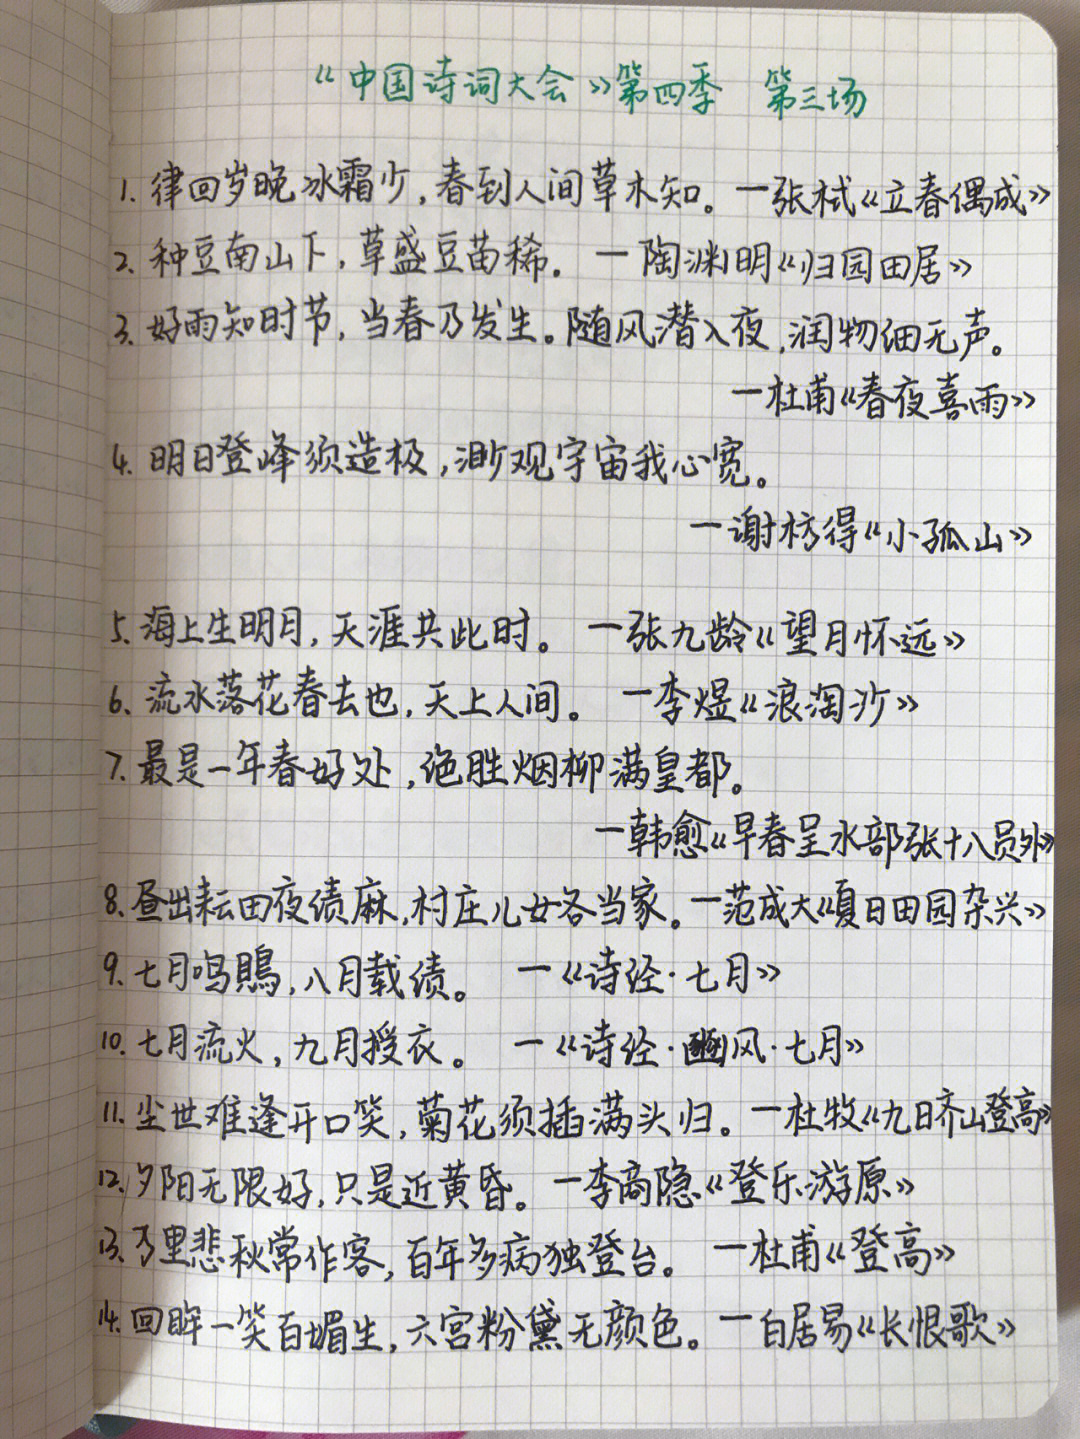 《中国诗词大会》第四季 第三场
1. 律回岁晚冰霜少,春到人间草木知。—张栻《立春偶成》
2. 种豆南山下,草盛豆苗稀。—陶渊明《归园田居》
3. 好雨知时节,当春乃发生。随风潜入夜,润物细无声。
—杜甫《春夜喜雨》
4. 明日登峰须造极,渺观宇宙我心宽。
—谢枋得《小孤山》
5. 海上生明月,天涯共此时。—张九龄《望月怀远》
6. 流水落花春去也,天上人间。—李煜《浪淘沙》
7. 最是一年春好处,绝胜烟柳满皇都。
—韩愈《早春呈水部张十八员外》
8. 昼出耘田夜绩麻,村庄儿女各当家。—范成大《夏日田园杂兴》
9. 七月鸣鵙,八月载绩。—《诗经·七月》
10. 七月流火,九月授衣。—《诗经·豳风·七月》
11. 尘世难逢开口笑,菊花须插满头归。—杜牧《九日齐山登高》
12. 夕阳无限好,只是近黄昏。—李商隐《登乐游原》
13. 万里悲秋常作客,百年多病独登台。—杜甫《登高》
14. 回眸一笑百媚生,六宫粉黛无颜色。—白居易《长恨歌》